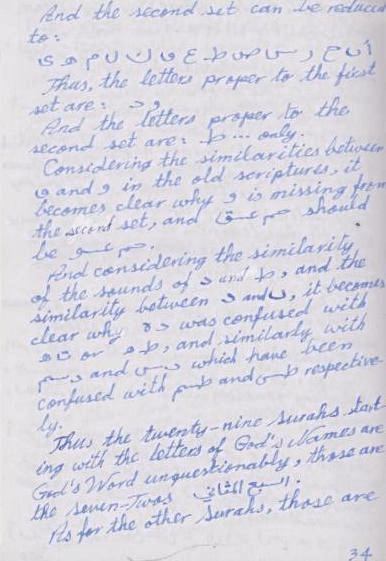 And the second set can be reduced
to:
أ ح ر س ص ط ع ق ك ل م ه ى
Thus, the letters proper to the first
set are: د و
And the letters proper to the
second set are: ط ... only.
Considering the similarities between
ق and و in the old scriptures, it
becomes clear why و is missing from
the second set, and حم عسق should
be حم عسو.
And considering the similarity
of the sounds of د and ط, and the
similarity between د and, it becomes
clear why was confused with
or, and similarly with
دسم and دس which have been
confused with طسم and طس respective-
ly.
Thus the twenty-nine surahs start-
ing with the letters of God's Names are
God's Word unquestionably, those are
the seven-Twos السبع المثاني.
As for the other surahs, those are
34